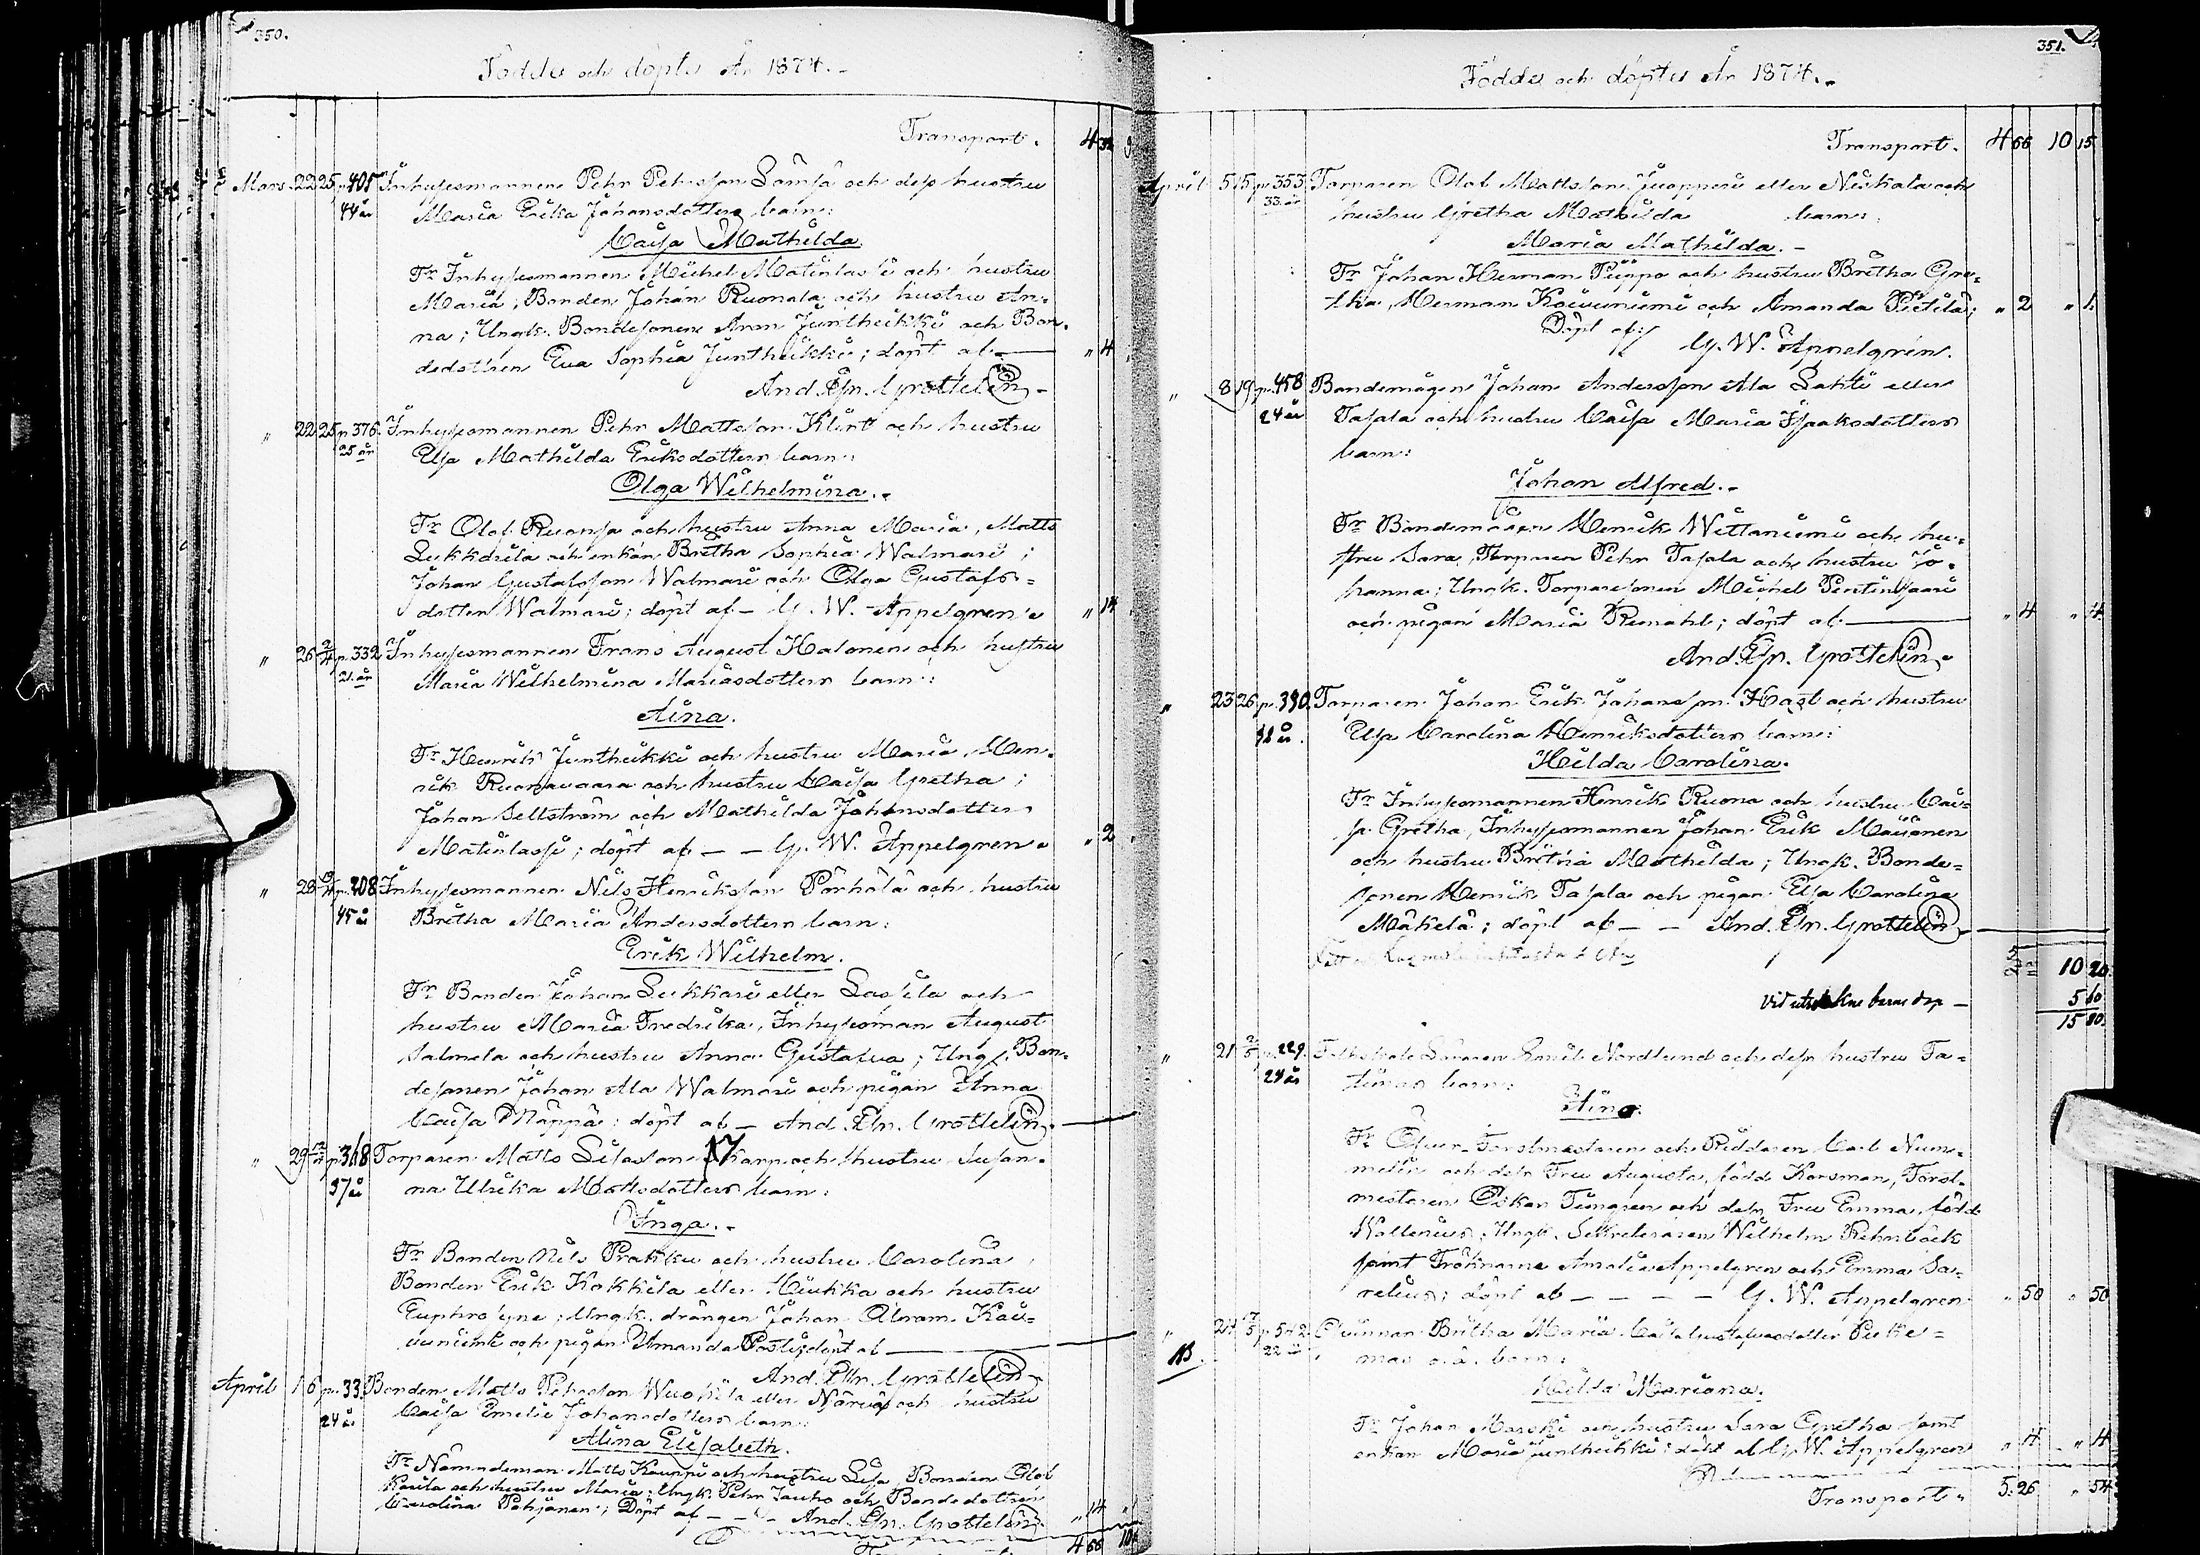 350.
Födde och döpte År 1874.-
Transport. 4 32
Mars 22 25 p. 405 Inhysesmannen Pehr Pehrsson Sämsä och dess hustru
44 år Maria Erika Johansdotters barn:
Caisa Mathilda.
Fr Inhysesmannen Michel Matinlassi och hustru
Maria; Bonden Johan Ruonala och hustru An-
na; Ungk. Bondesonen Aron Juntheikki och Bon-
dedottren Eva Sophia Juntheikki; döpt af — " 4
And. Joh. Grottelin -
" 22 25 p. 376. Inhysesmannen Pehr Mattsson Klint och hustru
25 år Elsa Mathilda Eriksdotters barn:
Olga Wilhelmina.-
Fr Olof Ruonsa och hustru Anna Maria, Matts
och enkan Britha Sophia Walmari;
Johan Gustafsson Walmari och Olga Gustafs=
dotter Walmari; döpt af - G. W. Appelgren. " 14
" 26 p. 332 Inhysesmannen Frans August Halonen och hustru
21 år Maria Wilhelmina Mariasdotters barn:
Aina.
Fr Henrik Juntheikki och hustru Maria, Hen-
rik Ruonavaara och hustru Caisa Gretha;
Johan Sellström och Mathilda Johansdotter
Matinlassi; döpt af — — G. W. Appelgren. " 2
" 28 p. 208 Inhysesmannen Nils Henriksson Pörhölä och hustru
45 år Britha Maria Andersdotters barn:
Erik Wilhelm.
Fr Bonden Johan Lukkari eller Lassila och
hustru Maria Fredrika, Inhysesman August
Salmela och hustru Anna Gustafva; Ungk. Bon-
desonen Johan Ala Walmari och pigan Anna
Caisa Näppä; döpt af — And. Joh. Grottelin.
" 29 p. 368 Torparen Matts Silasson Karp och hustru Susan-
37 år na Ulrika Mattsdotters barn:
Inga.-
Fr Bonden Nils Prakku och hustru Carolina,
Bonden Erik Kokkila eller Hiukka och hustru
Euphrosyne; Ungk. drängen Johan Abram Koi-
vuniemi och pigan Amanda Posti; döpt af —
And. Joh. Grottelin.
April 1 6 p. 33. Bonden Matts Pehrsson Wuokila eller Närvä och hustru
24 år Caisa Emelie Johansdotters barn:
Alina Elisabeth.
Fr Nämndeman Matts Kauppi och hustru Lisa, Bonden Olof
Kaula och hustru Maria; Ungk. Pehr Jauho och Bondedottren
Carolina Pohjanen; Döpt af — — And. Joh. Grottelin. " 14
4 66 10
351.
Födde och döpte År 1874.-
Transport. 4 66 10 15
April 5 15 p. 353 Torparen Olof Mattsson Juopperi eller Niskala och
33 år hustru Gretha Mathilda barn:
Maria Mathilda.-
Fr Johan Herman Piippo och hustru Britha Gre-
tha, Herman Koivuniemi och Amanda Pietilä; " 2 " 1.
Döpt af: G. W. Appelgren.
" 8 19 p. 458 Bondemågen Johan Andersson Ala Lahti eller
24 år Tasala och hustru Caisa Maria Isaksdotters
barn:
Johan Alfred.-
Fr Bondemågen Henrik Wittaniemi och hu-
stru Sara, Torparen Pehr Tasala och hustru Jo-
hanna; Ungk. Torparesonen Michel Pentinsaari
och pigan Maria Rundahl; döpt af — " 4 " 4
And. Joh. Grottelin.
" 23 26 p. 390. Torparen Johan Erik Johansson Hast och hustru
32 år. Elsa Carolina Henriksdotters barn:
Hilda Carolina.
Fr Inhysesmannen Henrik Ruona och hustru Cai-
sa Gretha, Inhysesmannen Johan Erik Moijanen
och hustru Britha Mathilda; Ungk. Bonde-
sonen Henrik Tasala och pigan Elsa Carolina
Mäkelä; döpt af — — And. Joh. Grottelin.
10 20
Vid utsokne barns dop — 5 60
15 80.
" 21 p. 229. Folkskole Läraren Nordlund och dess hustru Ta-
24 år barn:
Aino.
Fr Öfver-Forstmästaren och Riddaren Carl Num-
melin och dess Fru Augusta, född Korsman, Forst-
mästaren Oskar Timgren och dess Fru Emma, född
Wallenius; Ungk. Sekreteraren Wilhelm Rehnbäck
samt Fröknarna Amalia Appelgren och Emma Sa-
relius; döpt af — — — — G. W. Appelgren " 50 " 50
" 24 p. 542 Qvinnan Britha Maria Caisa Gustafvasdotter
22 år o.ä. barn:
Hilda Mariana.
Fr Johan Marski och hustru Sara Gretha samt
enkan Maria Juntheikki; döpt af G. W. Appelgren " 4 " 4
Transport " 5. 26 " 54